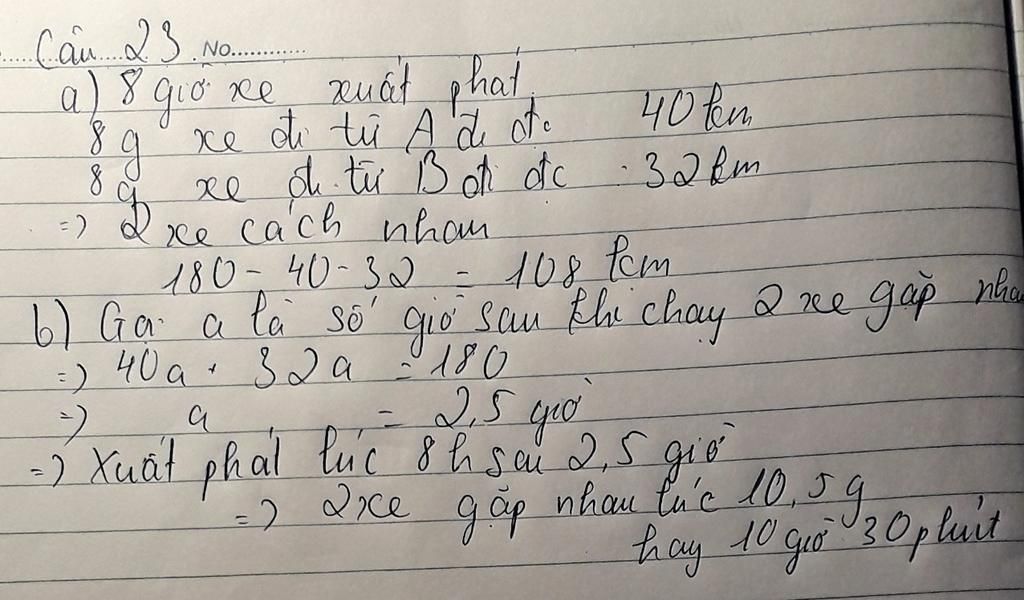 Câu 23 No............
a) 8 giờ xe xuất phát
8g xe đi từ A đi đc 40 km
8g xe đi từ B đi đc 32 km
=> 2 xe cách nhau
180 - 40 - 32 = 108 km
b) Gọi a là số giờ sau khi chạy 2 xe gặp nhau
=> 40a + 32a = 180
=> a = 2,5 giờ
=> Xuất phát lúc 8h sau 2,5 giờ
=> 2 xe gặp nhau lúc 10,5g
hay 10 giờ 30 phút